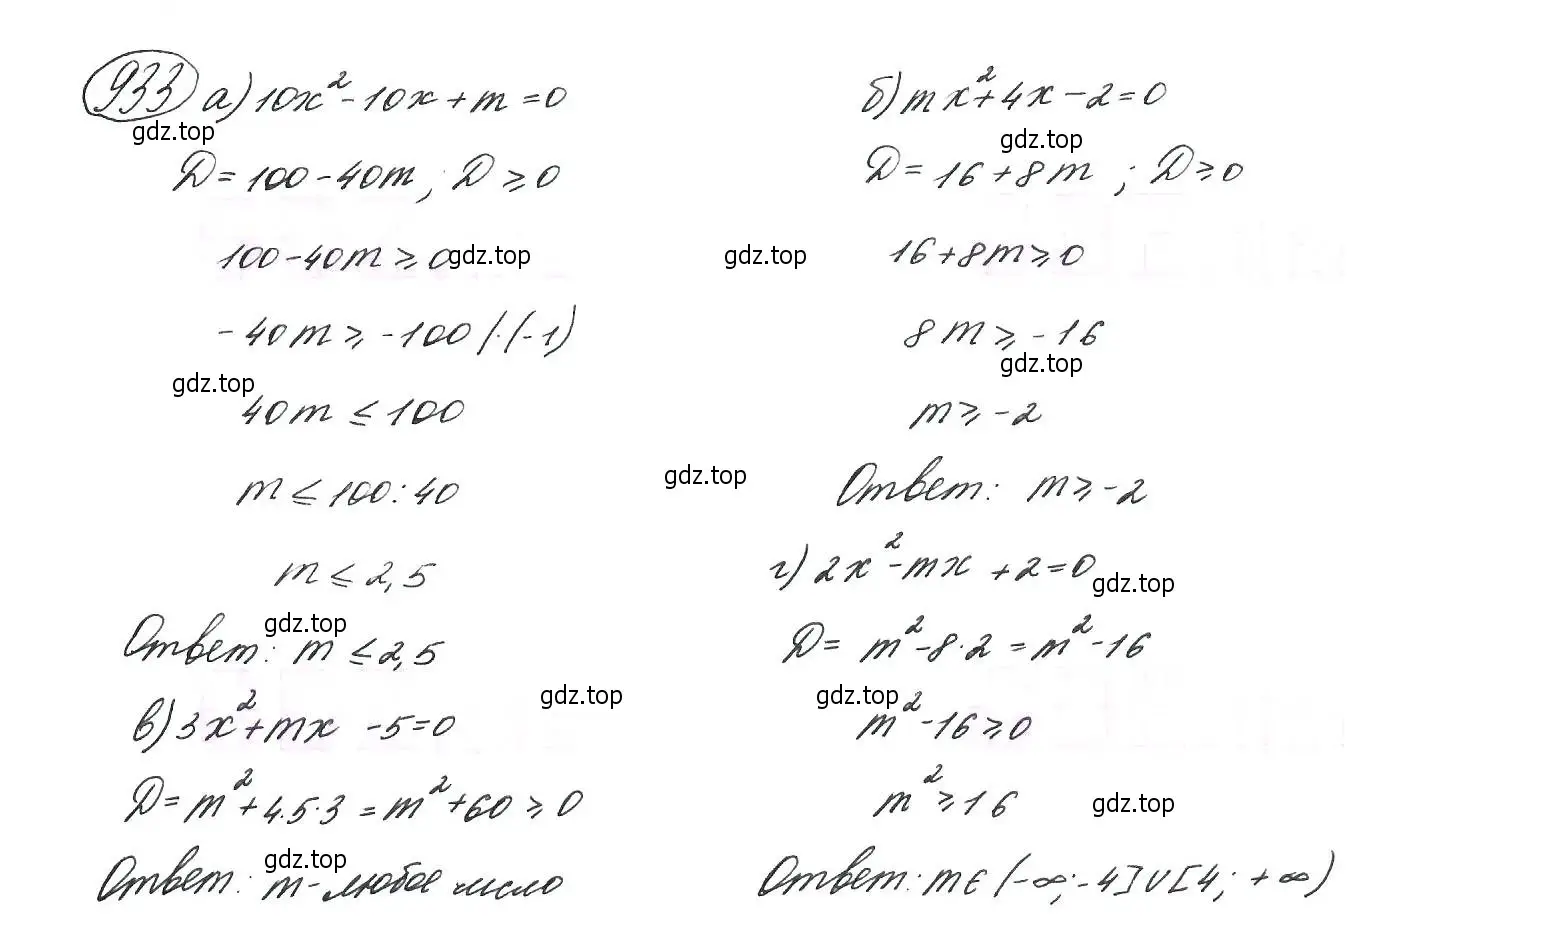 933 а) 10x² - 10x + m = 0
gdz.top
D = 100 - 40m ; D ≥ 0
100 - 40m ≥ 0 gdz.top
- 40m ≥ -100 | · (-1)
gdz.top
40m ≤ 100
m ≤ 100 : 40
m ≤ 2,5
gdz.top
Ответ: m ≤ 2,5
gdz.top
в) 3x² + mx - 5 = 0
D = m² + 4·5·3 = m² + 60 ≥ 0
gdz.top
Ответ: m - любое число
б) mx² + 4x - 2 = 0
gdz.top
D = 16 + 8m ; D ≥ 0
gdz.top
16 + 8m ≥ 0
8m ≥ -16
gdz.top
m ≥ -2
gdz.top
Ответ: m ≥ -2
г) 2x² - mx + 2 = 0
gdz.top
D = m² - 8·2 = m² - 16
gdz.top
m² - 16 ≥ 0
m² ≥ 16
gdz.top
Ответ: m ∈ (-∞; -4] ∪ [4; +∞)